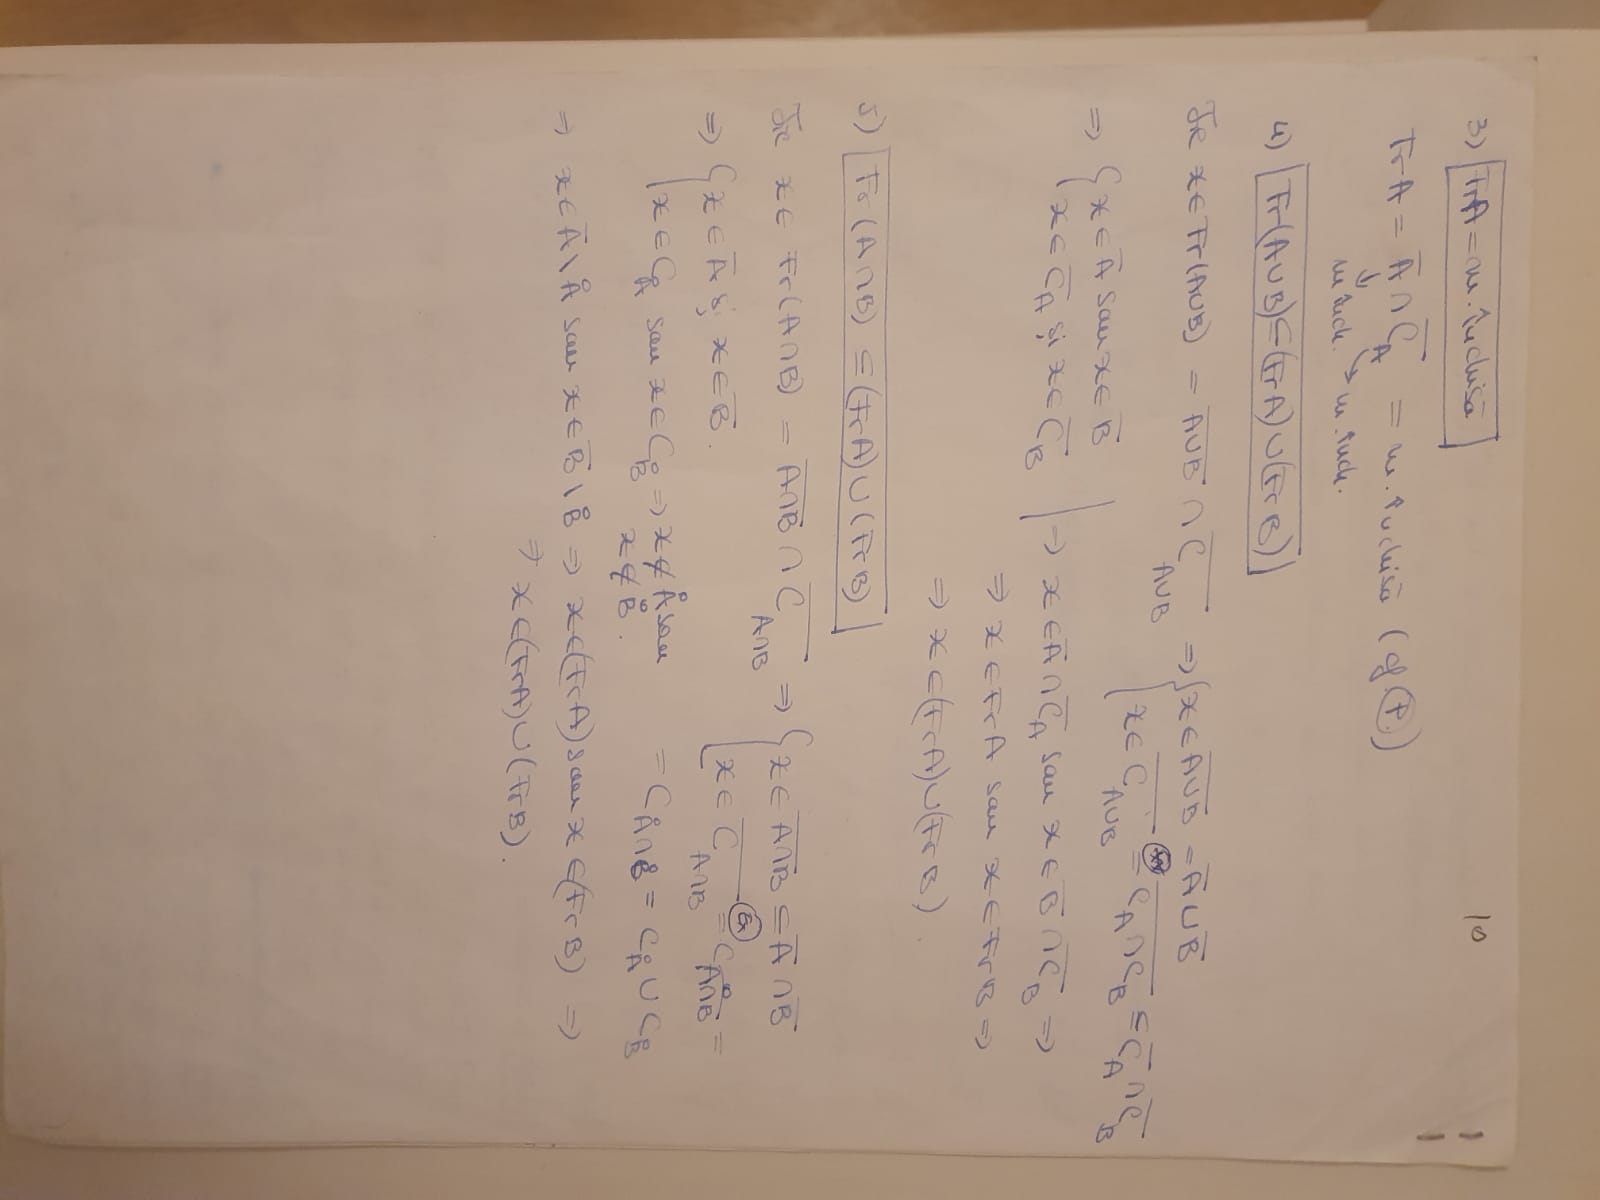 10
3) FrA = m. închisă
FrA = A̅ ∩ C̅_A = m. închisă (cf. P.)
↓ m. înch. → m. înch.
4) Fr(A∪B) ⊆ (FrA) ∪ (FrB)
Fie x ∈ Fr(A∪B) = \overline{A∪B} ∩ \overline{C_{A∪B}} ⇒ { x ∈ \overline{A∪B} = A̅ ∪ B̅
x ∈ \overline{C_{A∪B}} = \overline{C_A ∩ C_B} ⊆ \overline{C_A} ∩ \overline{C_B}
⇒ { x ∈ A̅ sau x ∈ B̅
x ∈ \overline{C_A} și x ∈ \overline{C_B} | ⇒ x ∈ A̅ ∩ \overline{C_A} sau x ∈ B̅ ∩ \overline{C_B} ⇒
⇒ x ∈ FrA sau x ∈ FrB ⇒
⇒ x ∈ (FrA) ∪ (FrB)
5) Fr(A∩B) ⊆ (FrA) ∪ (FrB)
Fie x ∈ Fr(A∩B) = \overline{A∩B} ∩ \overline{C_{A∩B}} ⇒ { x ∈ \overline{A∩B} ⊆ A̅ ∩ B̅
x ∈ \overline{C_{A∩B}} = C_{\mathring{\overline{A∩B}}} =
⇒ { x ∈ A̅ și x ∈ B̅.
x ∈ C_Å sau x ∈ C_B̊ ⇒ x ∉ Å sau x ∉ B̊.
= C_{Å∩B̊} = C_Å ∪ C_B̊
⇒ x ∈ A̅ \ Å sau x ∈ B̅ \ B̊ ⇒ x ∈ (FrA) sau x ∈ (FrB) ⇒
⇒ x ∈ (FrA) ∪ (FrB).